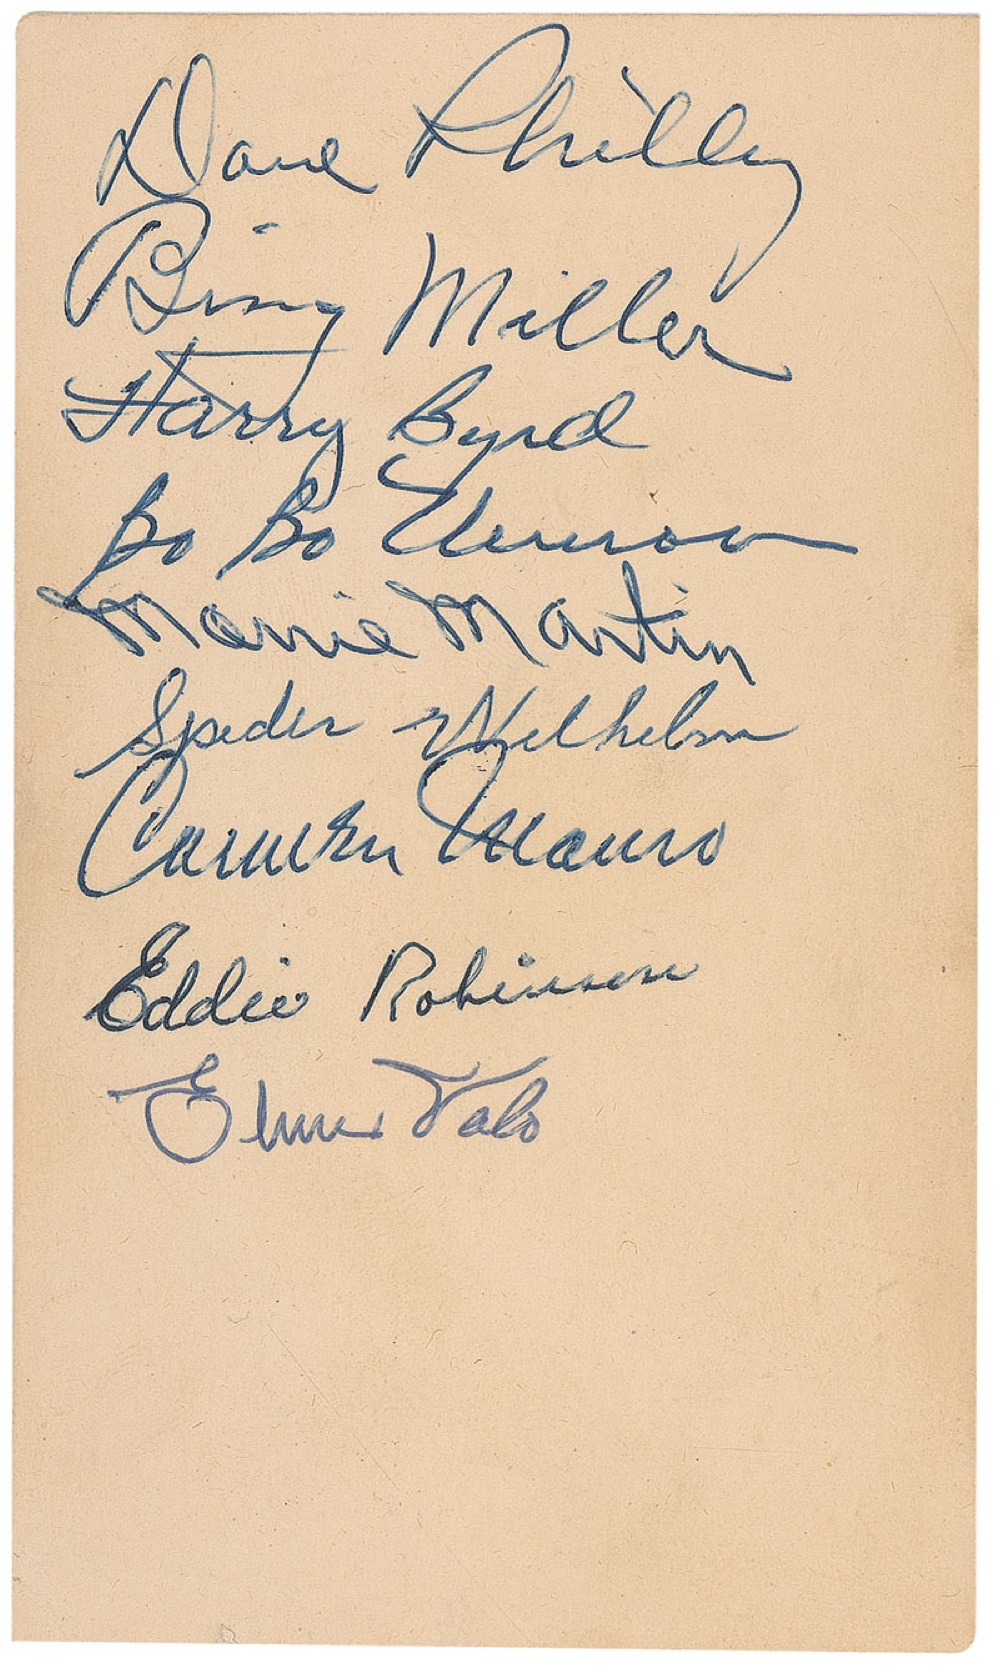 Dave Philley
Bing Miller
Harry Byrd
Bo Bo Newsom
Morrie Martin
Spider Wilhelm
Carmen Mauro
Eddie Robinson
Elmer Valo